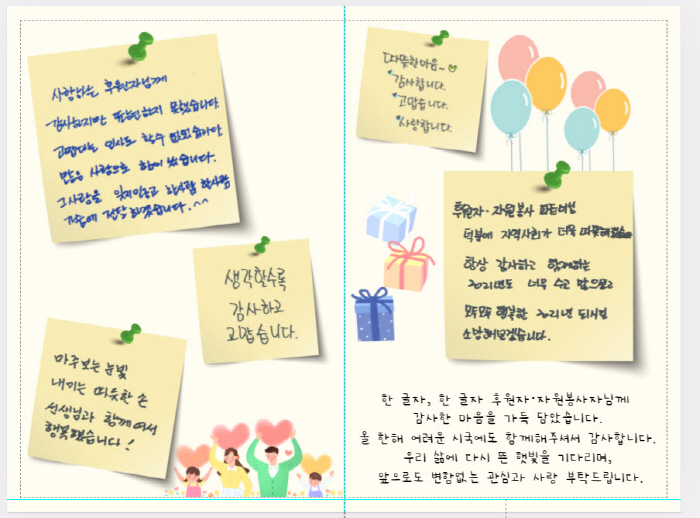 사랑하는 후원자님께
감사하지만 표현하지 못했습니다
고맙다는 인사도 할수 없었습니다
많은 사랑으로 힘이 났습니다.
그사랑을 잊지않고 한사람 한사람
전달하겠습니다.^^
생각할수록
감사하고
고맙습니다.
마주보는 눈빛
내미는 따뜻한 손
선생님과 함께여서
행복했습니다!
따뜻한마음~
감사합니다.
고맙습니다.
사랑합니다.
후원자·자원봉사 파트너님
덕분에 지역사회가 더욱
항상 감사하고 함께하는
2021년도 너무 수고 많으셨고
모두모두 행복한 2021년 되시길
소망해보겠습니다.
한 글자, 한 글자 후원자·자원봉사자님께
감사한 마음을 가득 담았습니다.
올 한해 어려운 시국에도 함께해주셔서 감사합니다.
우리 삶에 다시 뜬 햇빛을 기다리며,
앞으로도 변함없는 관심과 사랑 부탁드립니다.